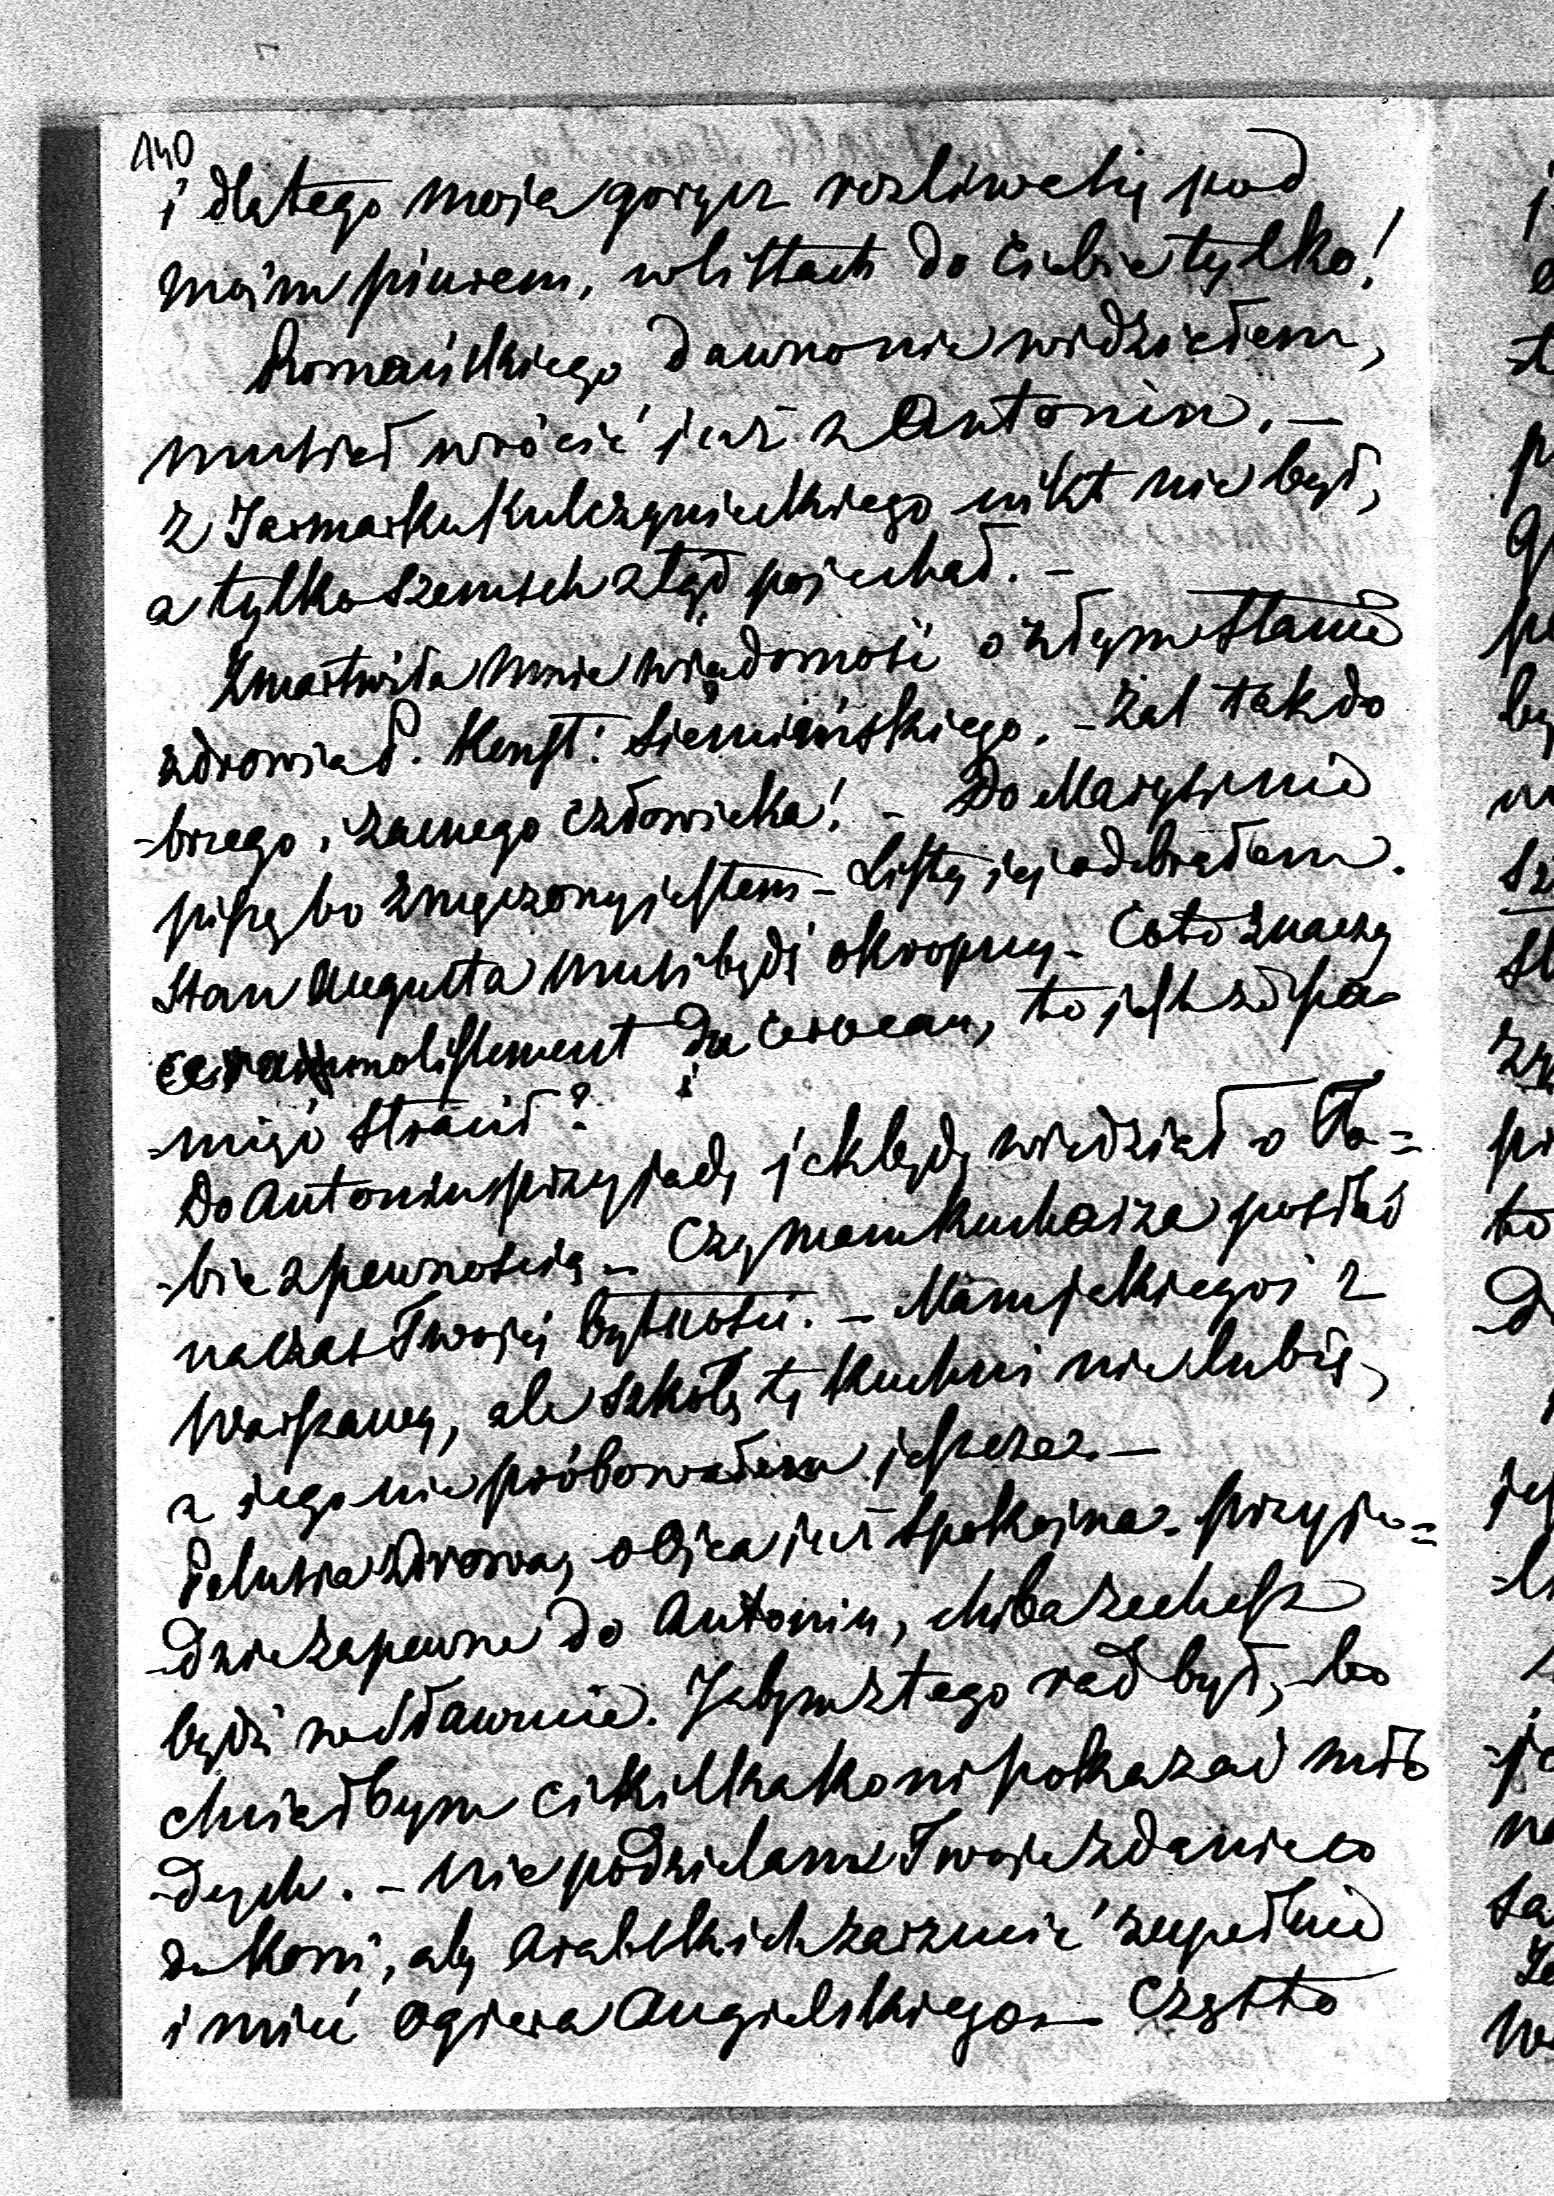 140
i dlatego moja gorycz rozliwa się pod
moim piurem, w listach do Ciebie tylko!
Romańskiego dawno nie widziałem,
musiał wrócić już z Antonin. —
z Jarmarku Kulczynieckiego nikt nie był,
a tylko Szemseh ztąd pojechał. —
Zmartwiła mnie wiadomość o złym stanie
zdrowia P. Konst: Siemieńskiego. – Żal tak do
-brego, zacnego człowieka! – Do Marysi nie
piszę bo zmęczony jestem – Listy jej odebrałem.
Stan Augusta musi być okropny – Co to znaczy
ramolissement du cerveau, to jest że pa-
-mięć stracił?
Do Antonin przyjadę jak będę wiedział o To-
-bie z pewnością – Czy mam kucharza posłać
na czas Twojej bytności. – Mam jakiegoś z
Warszawy, ale szkoły tej kuchni nie lubię,
a jego nie próbowałem jeszcze. —
Pelusia zdrowa, o Ojca już spokojna. Przyje=
-dzie zapewne do Antonin, chiba zechesz
być w Sławucie. Jabym z tego rad był, bo
chciałbym ci kilka koni pokazać mło
-dych. – Nie podzielam Twoje zdanie co
do koni, aby Arabskich zarzucić zupełnie
i mieć Ogiera Angielskiego – Często